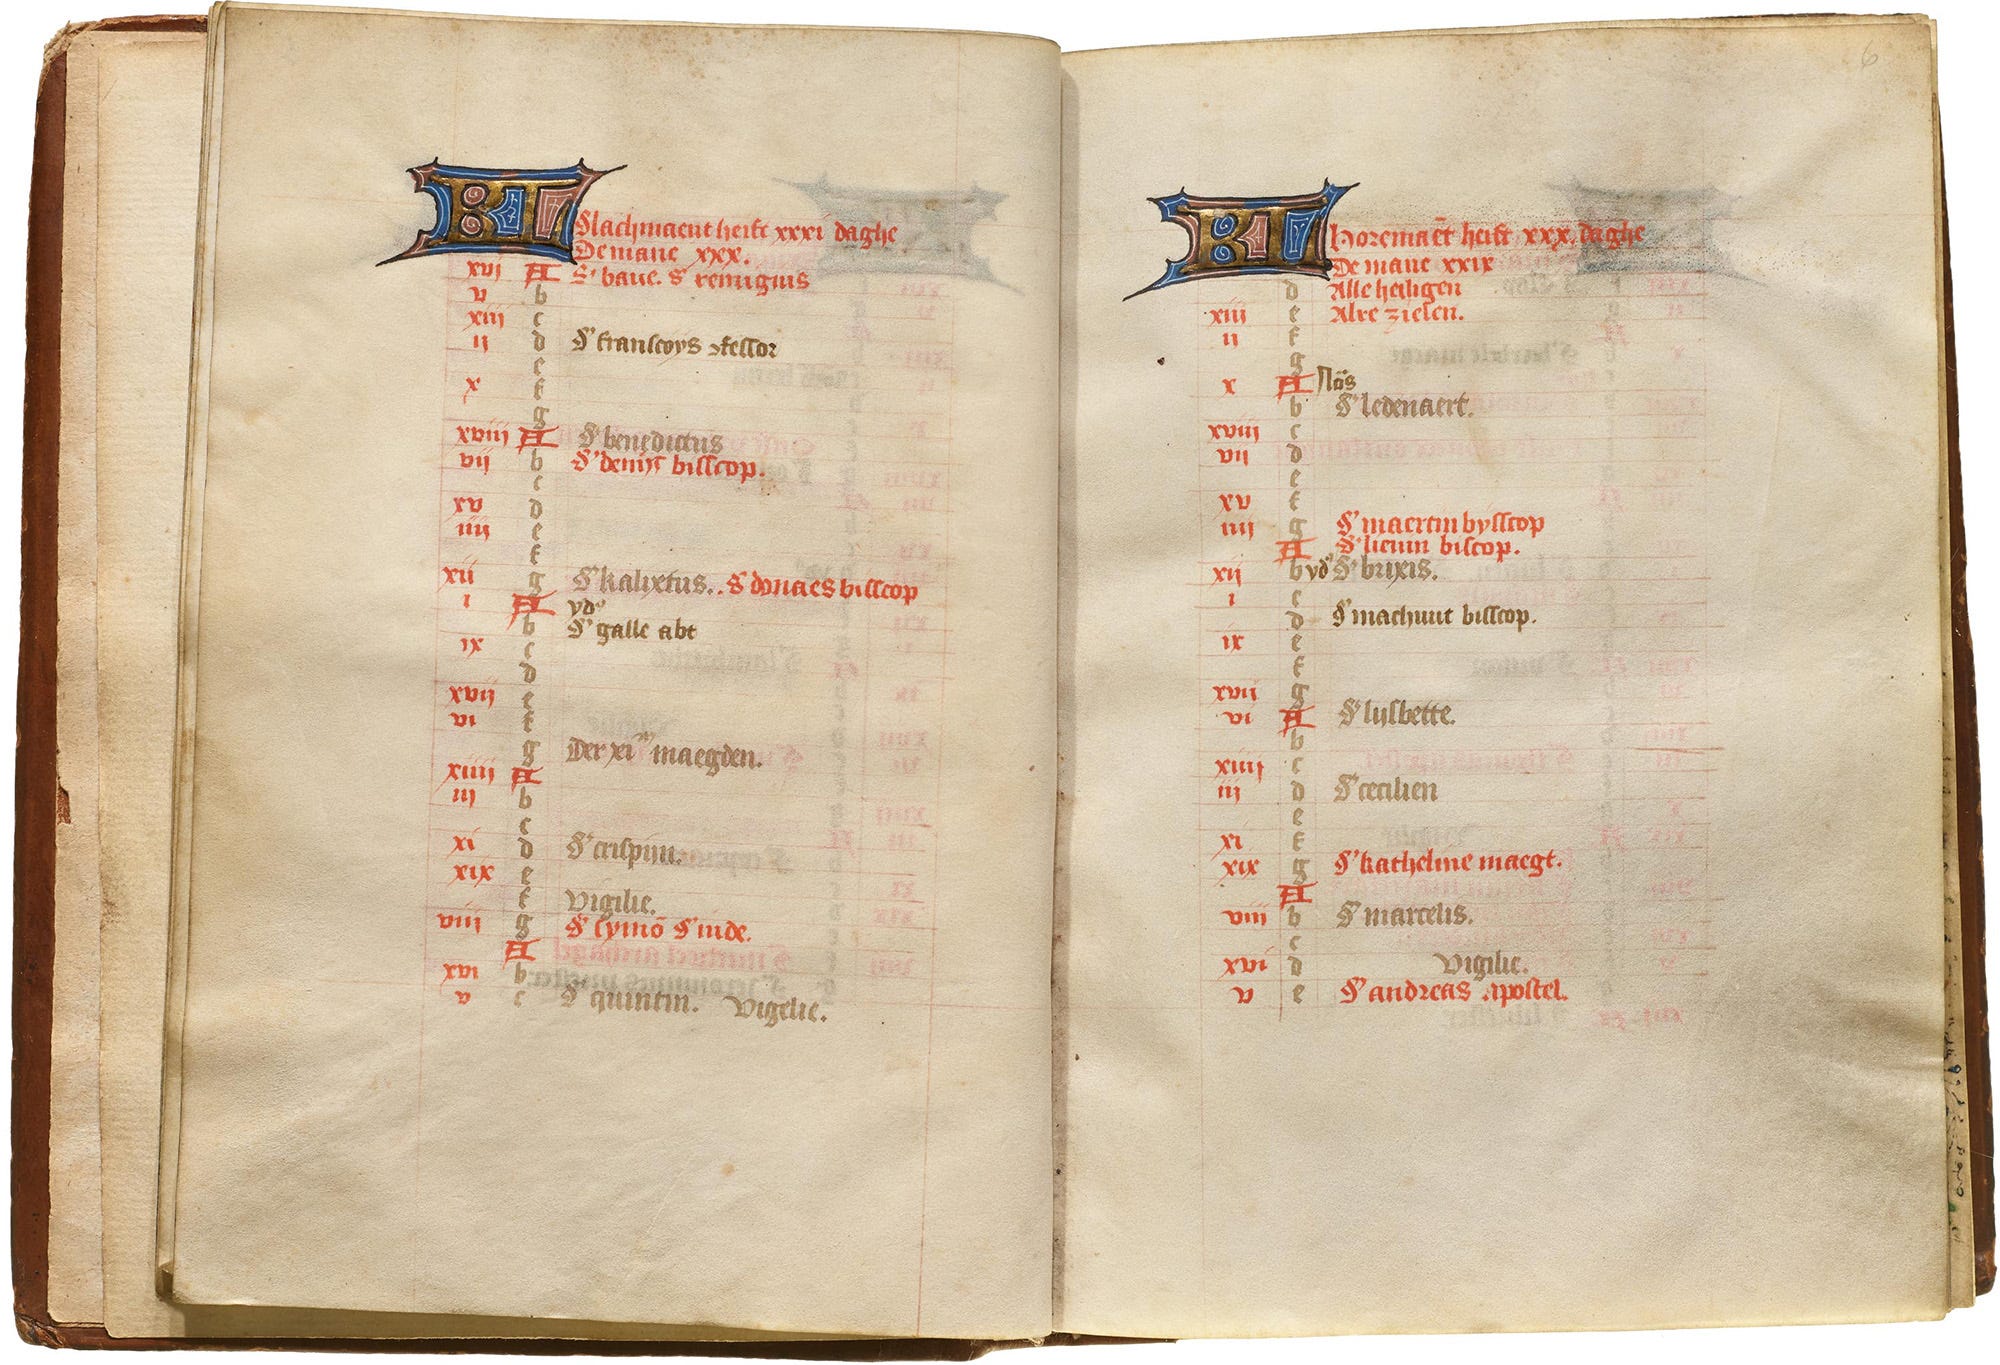 KL Slachmaent heift xxxi daghe
De mane xxx.
xvi A S' bave. S' remigius
v b
xiii c
ii d S' franscoys 9fessor
e
x f
g
xviii A S' benedictus
vii b S' denijs bisscop.
c
xv d
iiii e
f
xii g S' kalixtus.. S donaes bisscop
i A yd9
b S' galle abt
ix c
d
xvii e
vi f
g Der xi m maegden.
xiiii A
iii b
c
xi d S' crispijn.
xix e
f Vigilie.
viii g S' symō S' iude.
A
xvi b
v c S' quintin. Vigelie.
6
KL Horemaēt heift xxx. daghe
De mane xxix
d Alle heiligen
xiii e Alre zielen.
ii f
g
x A Nōs
b S' ledenaert.
xviii c
vii d
e
xv f
iiii g S' maertin bysscop
A S' lieuin biscop.
xii b yd9 S' brixis.
i c
d S' machuut bisscop.
ix e
f
xvii g
vi A S' lysbette.
b
xiiii c
iii d S' cecilien
e
xi f
xix g S' katheline maegt.
A
viii b S' marcelis.
c
xvi d Vigilie.
v e S' andreas apostel.